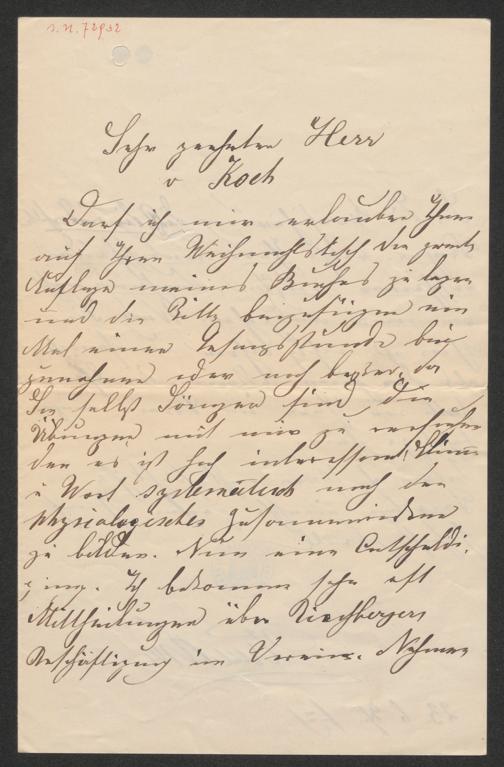 I.N. 72932
Sehr geehrter Herr
v Koch
Darf ich mir erlauben Ihnen
auf Ihren Weihnachtstisch die zweite
Auflage meines Buches zu legen
und die Bitte beizufügen ein
Mal einer Gesangsstunde bei
zuwohnen oder noch besser, da
Sie selbst Sänger sind, die
Übungen mit mir zu versuchen
den es ist hoch interessant, Stimme
u Wort systematisch nach den
physiologischen
zu bilden. Nun eine Entschuldi
gung. Ich bekomme sehr oft
Mittheilungen über Kirchbergers
Beschäftigung im Verein. Nehmen